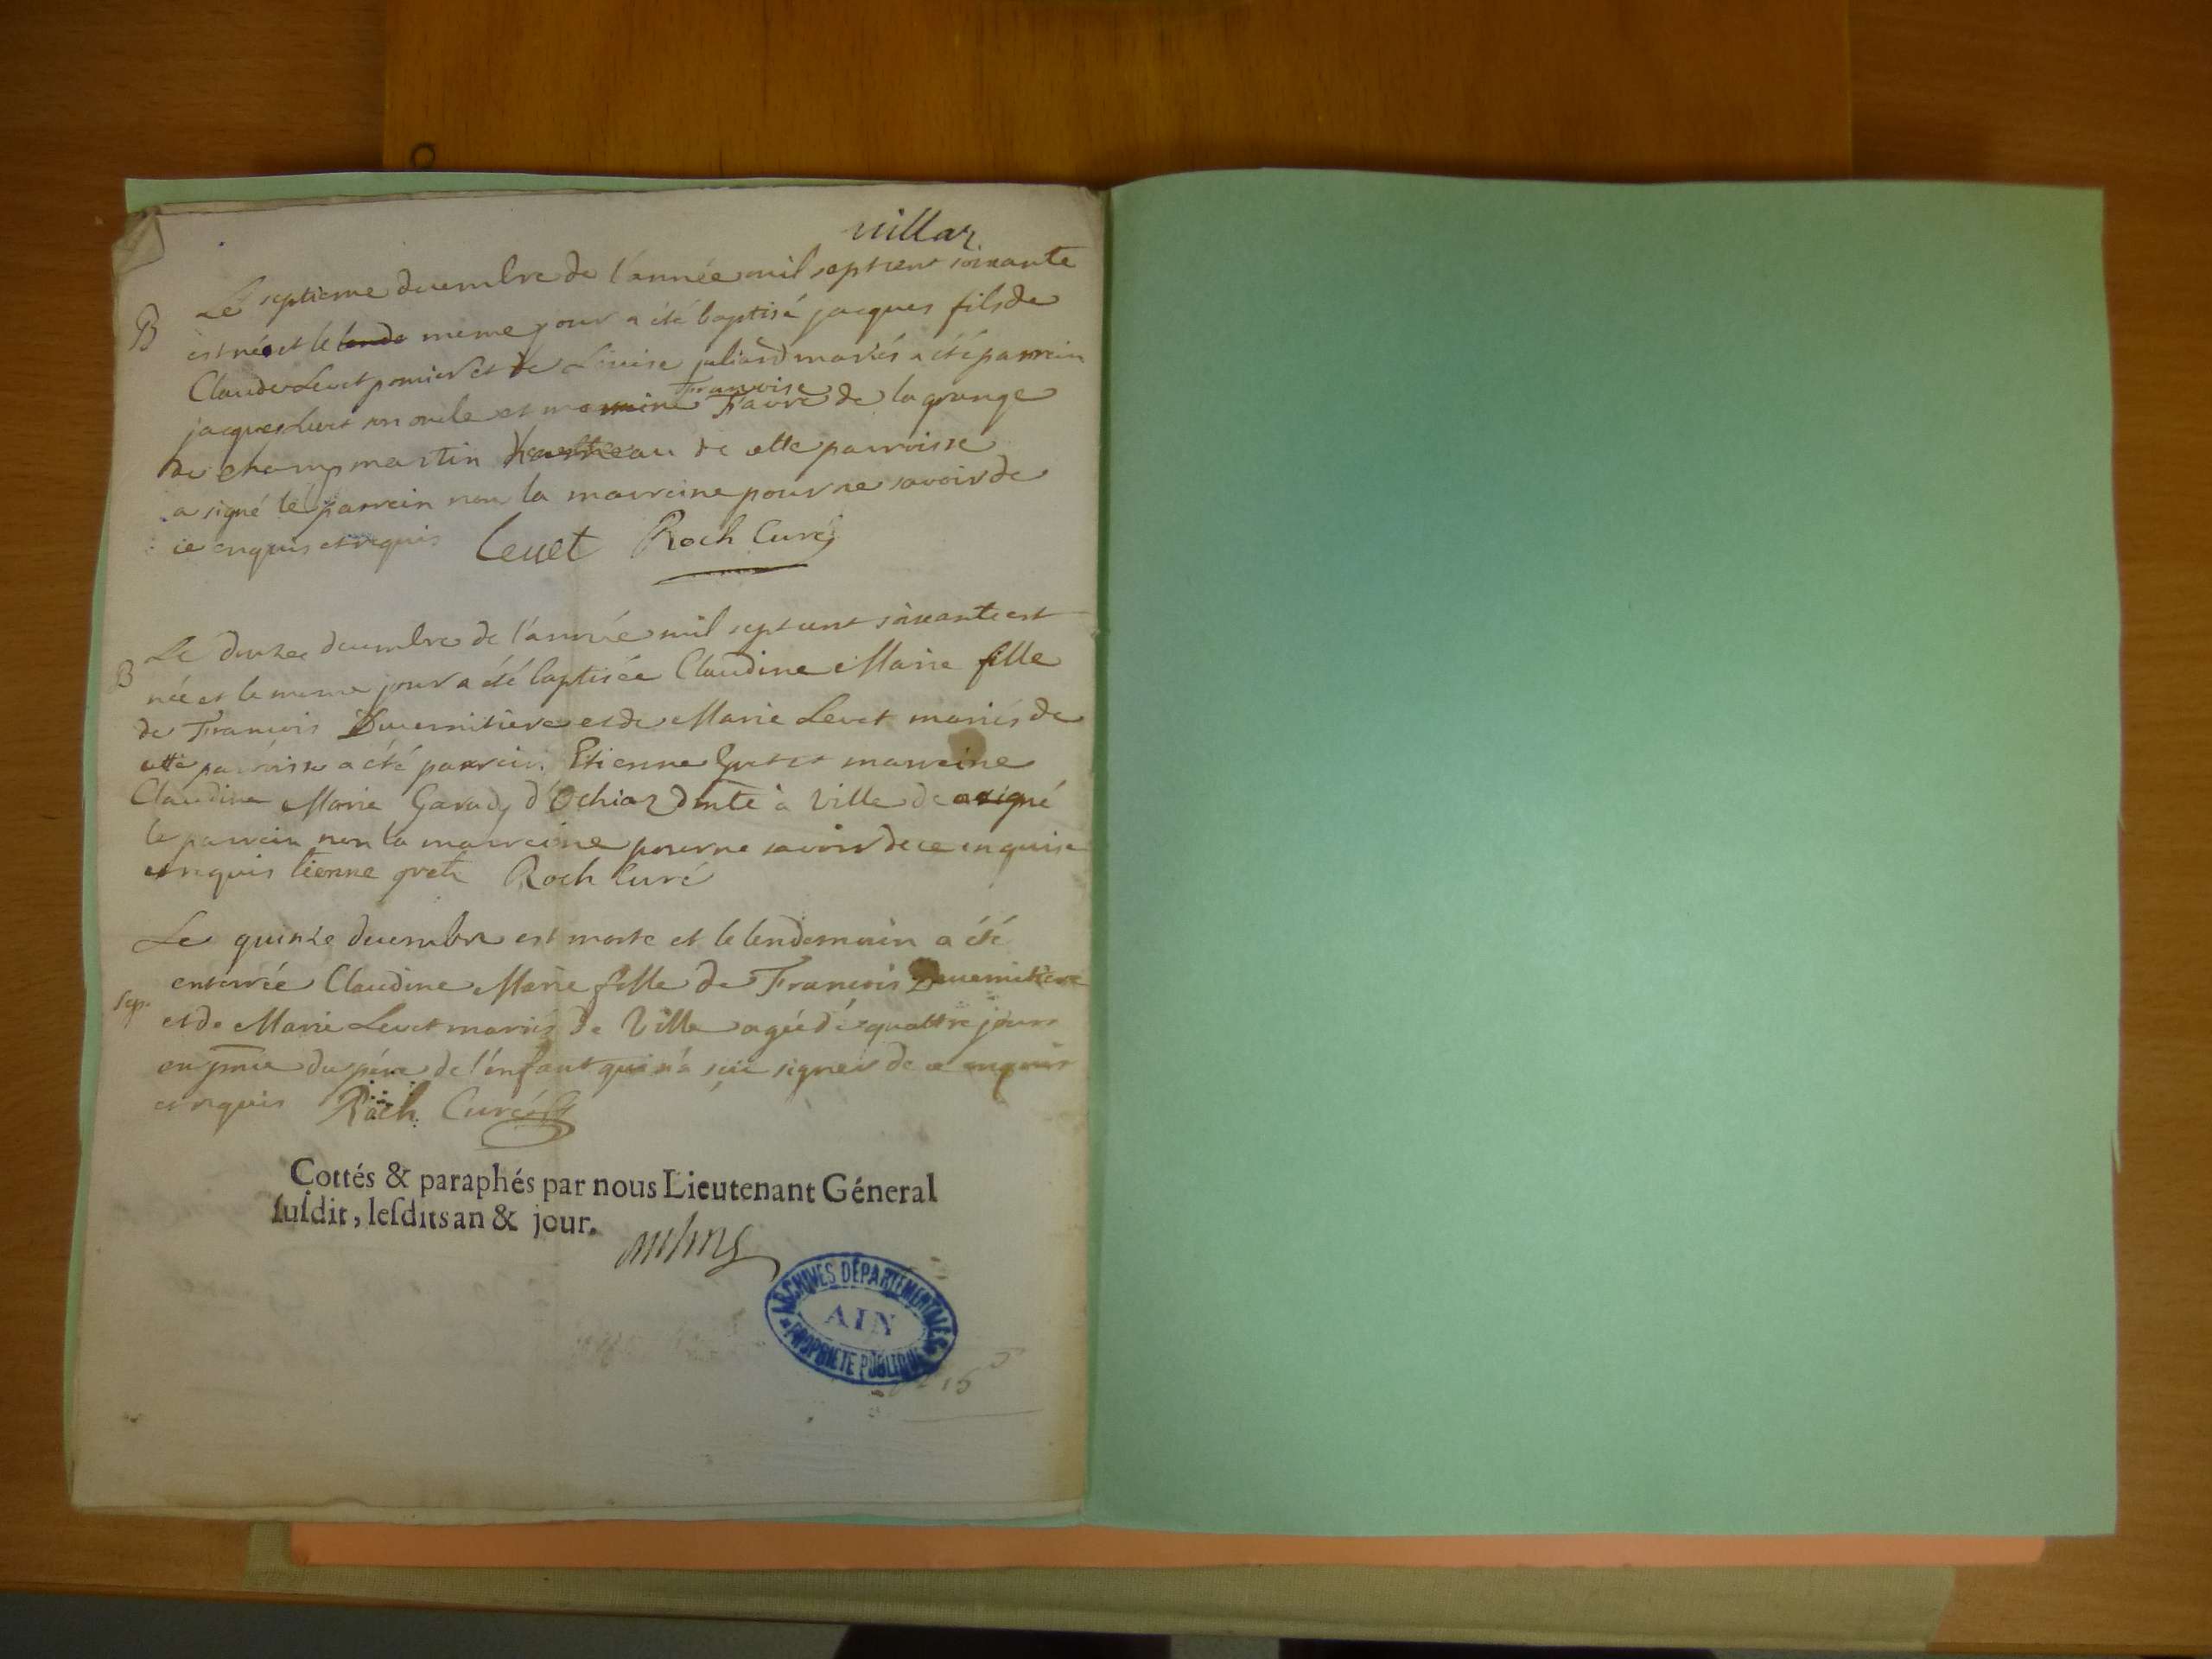 villar
B Le septieme decembre de l'année mil sept cent soixante
est né et le lende meme jour a été baptisé jacques fils de
Claude Levet et de Louise juliard mariés a été parrain
jacques Levet son oncle et Francoise Favre de la grange
de champ martin de cette parroisse
a signé le parrein non la marreine pour ne savoir de
ce enquis et requis Levet Roch Curé
B Le douze decembre de l'année mil sept cent soixante est
née et le meme jour a été baptisée Claudine Marie fille
de Francois et de Marie Levet mariés de
cette parroisse a été parrein Etienne et marreine
Claudine Marie d'Ochiaz à Ville a signé
le parrein non la marreine pour ne savoir de ce enquise
et requis tienne Roch Curé
Le quinze decembre est morte et le lendemain a été
enterrée Claudine Marie fille de Francois
Sep. et de Marie Levet mariés de Ville agée de quattre jours
en pnce du pére de l'enfant qui n'a scu signer de ce enquis
et requis Roch Curé
Cottés & paraphés par nous Lieutenant Géneral
suſdit, leſdits an & jour.
ARCHIVES DÉPARTEMENTALES
AIN
PROPRIÉTÉ PUBLIQUE